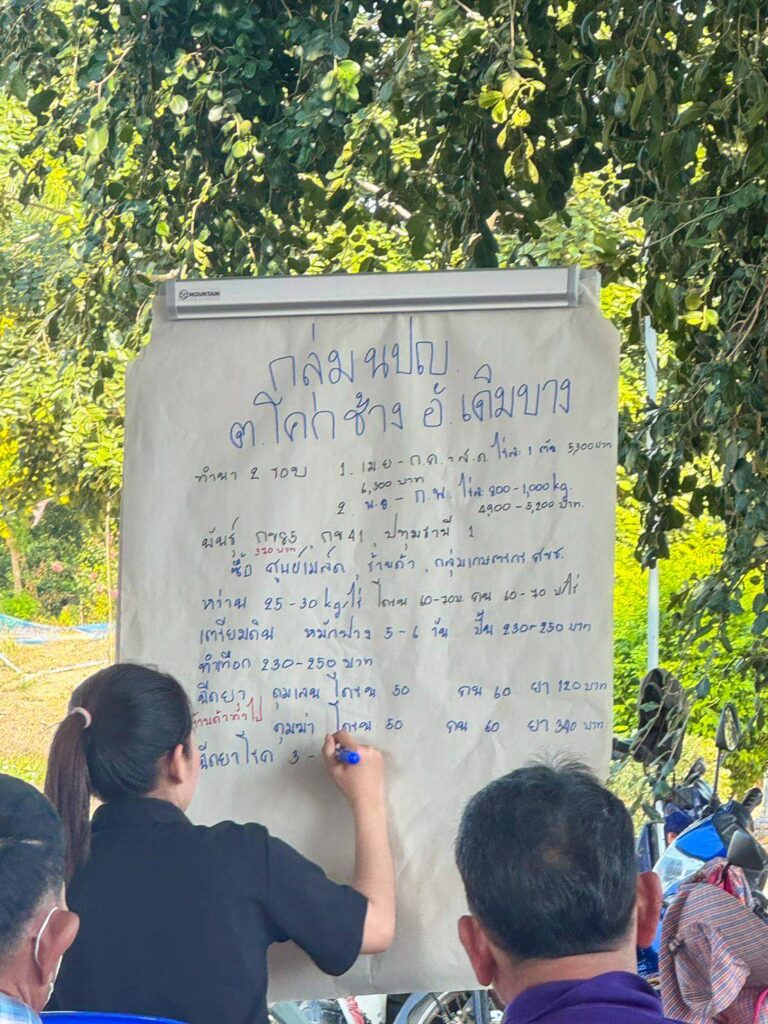 MOUNTAIN
กลุ่ม นปญ.
ต.โคกช้าง อ.เดิมบาง
ทำนา 2 รอบ 1. เม.ย - ก.ค, - ส.ค. ไร่ละ 1 ตัน 5,300 บาท
6,300 บาท
2. พ.ย. - ก.พ. ไร่ละ 800 - 1,000 kg.
4,900 - 5,200 บาท.
พันธุ์ กข85, กข41, ปทุมธานี 1
370 บาท
ซื้อ ศูนย์เมล็ด, ร้านค้า, กลุ่มเกษตรกร ศขช.
หว่าน 25 - 30 kg/ไร่ โดรน 60-70บ. คน 60 - 70 บ/ไร่
เตรียมดิน หมักฟาง 5 - 6 วัน ปั่น 230 - 250 บาท
ทำเทือก 230 - 250 บาท
ฉีดยา คุมเลน โดรน 50 คน 60 ยา 120 บาท
ร้านค้าทั่วไป คุมฆ่า โดรน 50 คน 60 ยา 340 บาท
ฉีดยาโรค 3 -